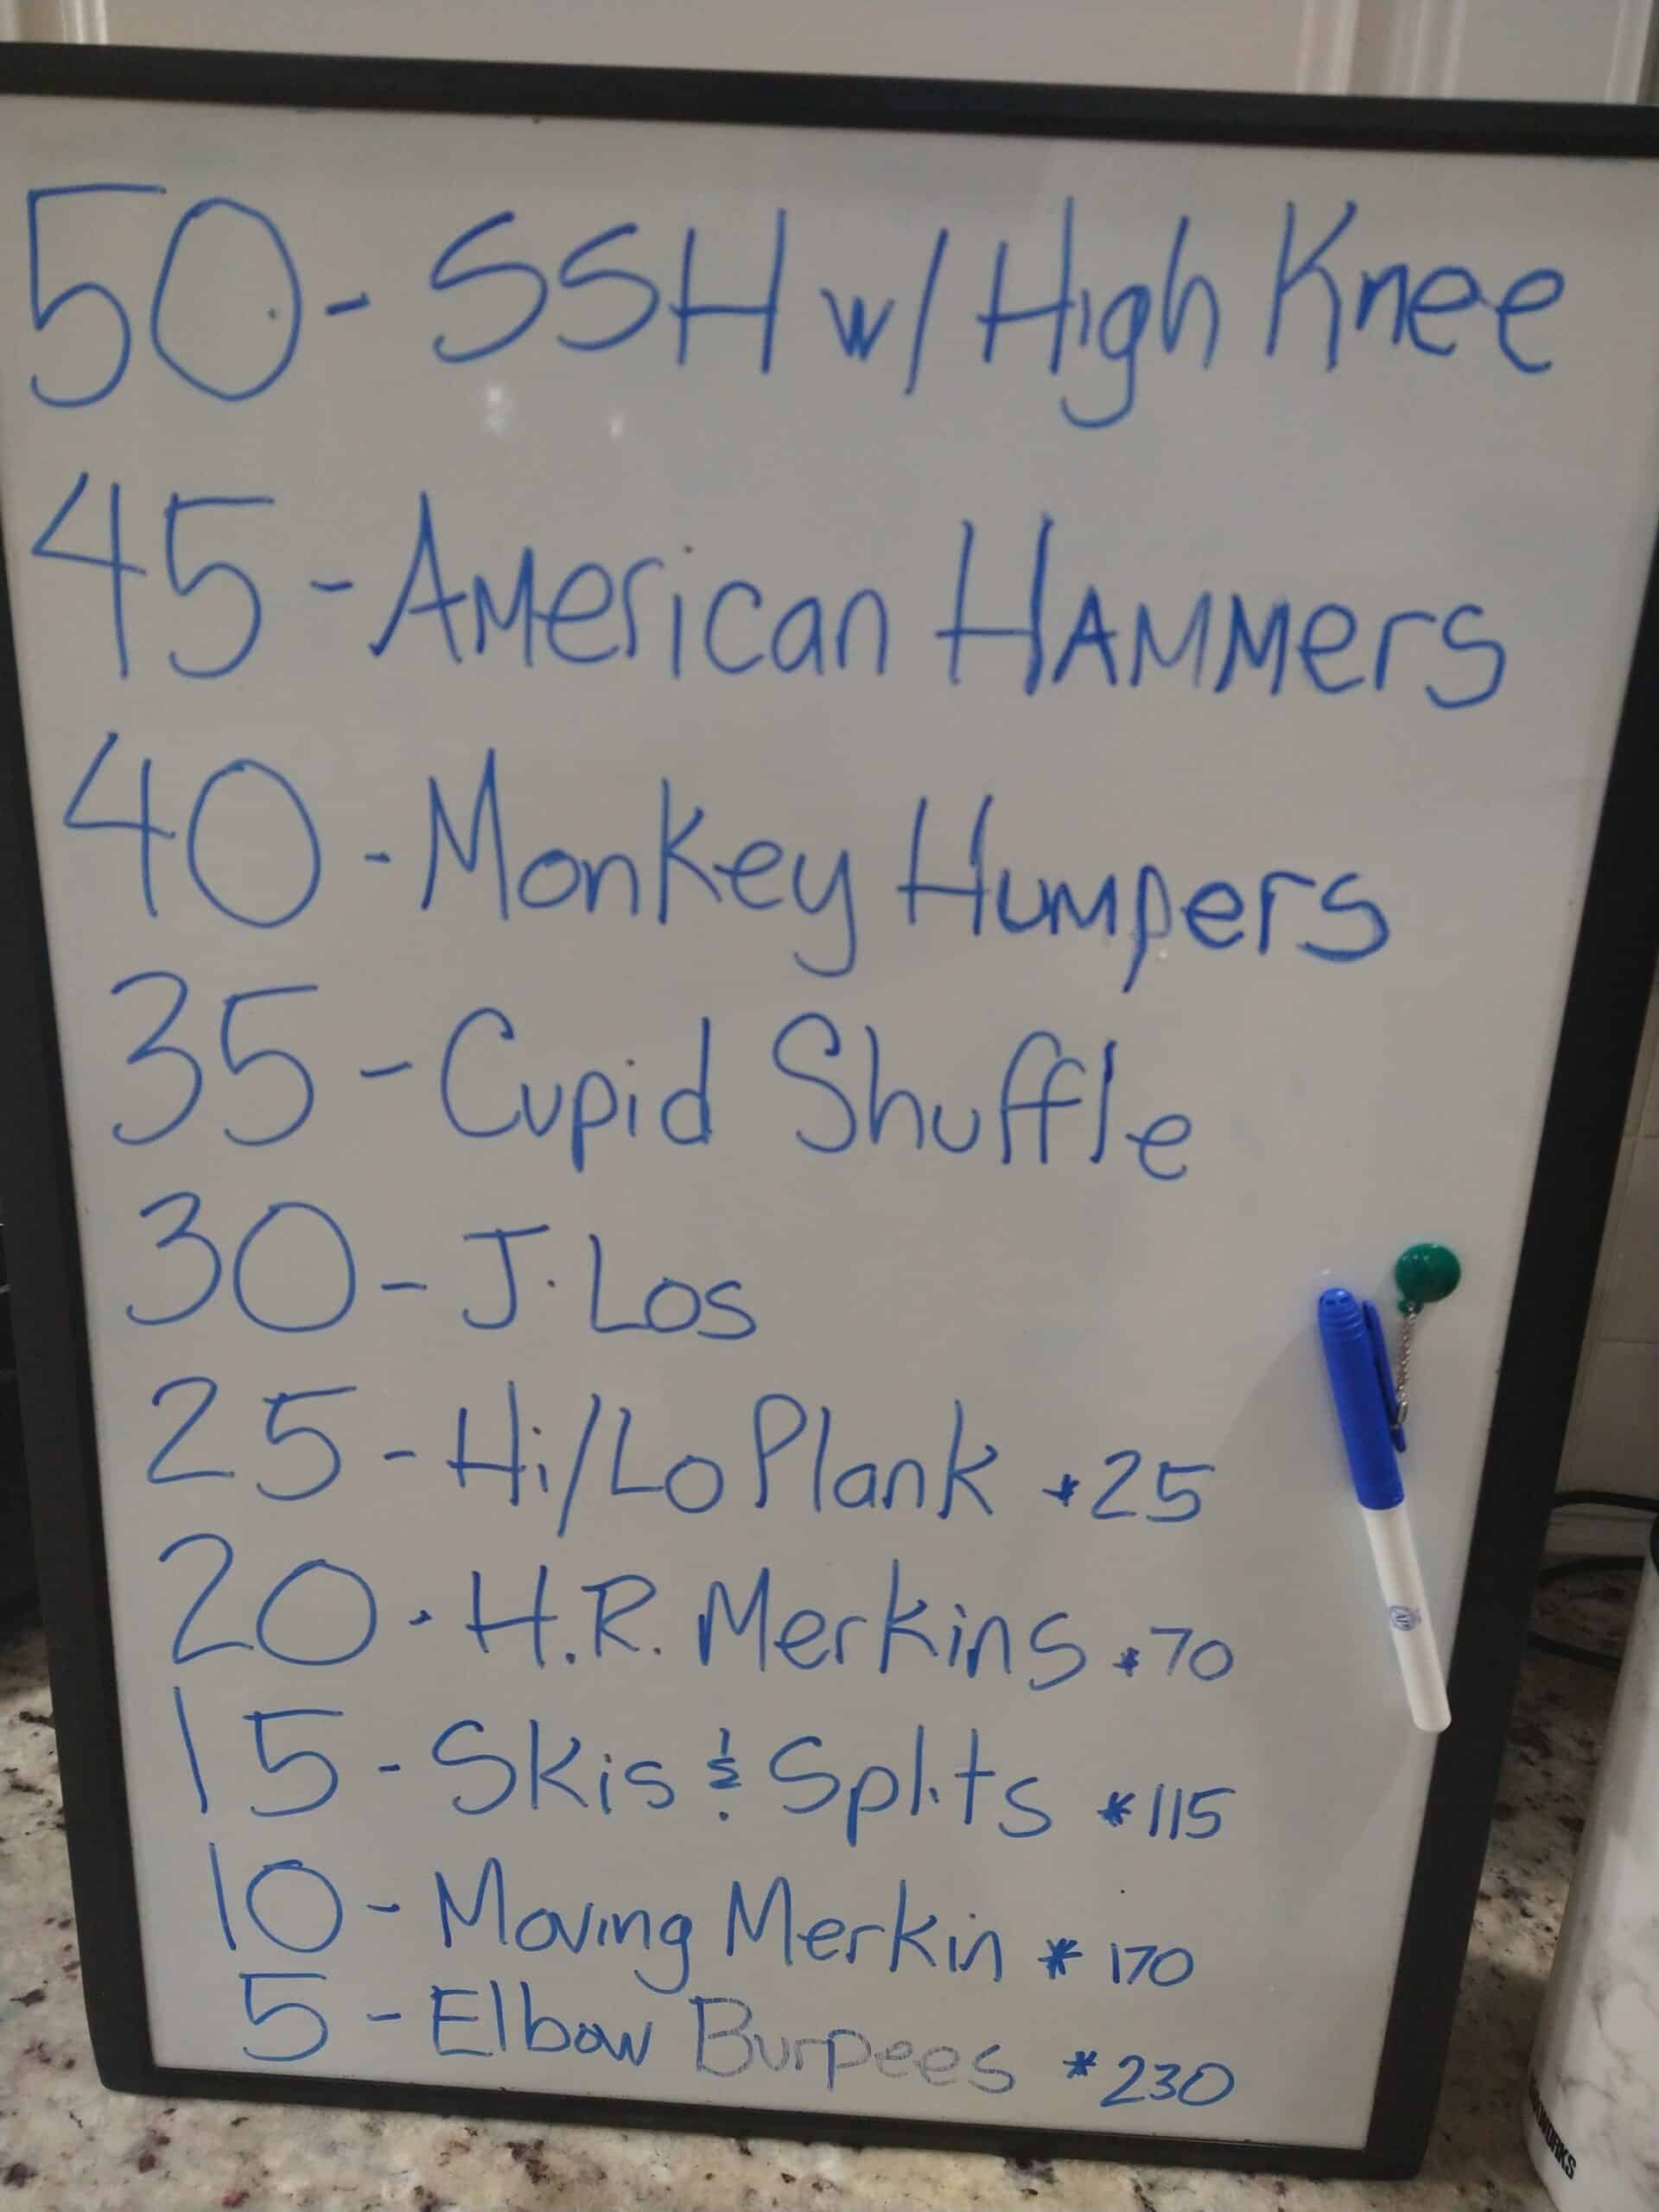 50 - SSH w/ High Knee
45 - American Hammers
40 - Monkey Humpers
35 - Cupid Shuffle
30 - J. Los
25 - Hi/Lo Plank *25
20 - H.R. Merkins *70
15 - Skis & Splits *115
10 - Moving Merkin *170
5 - Elbow Burpees *230